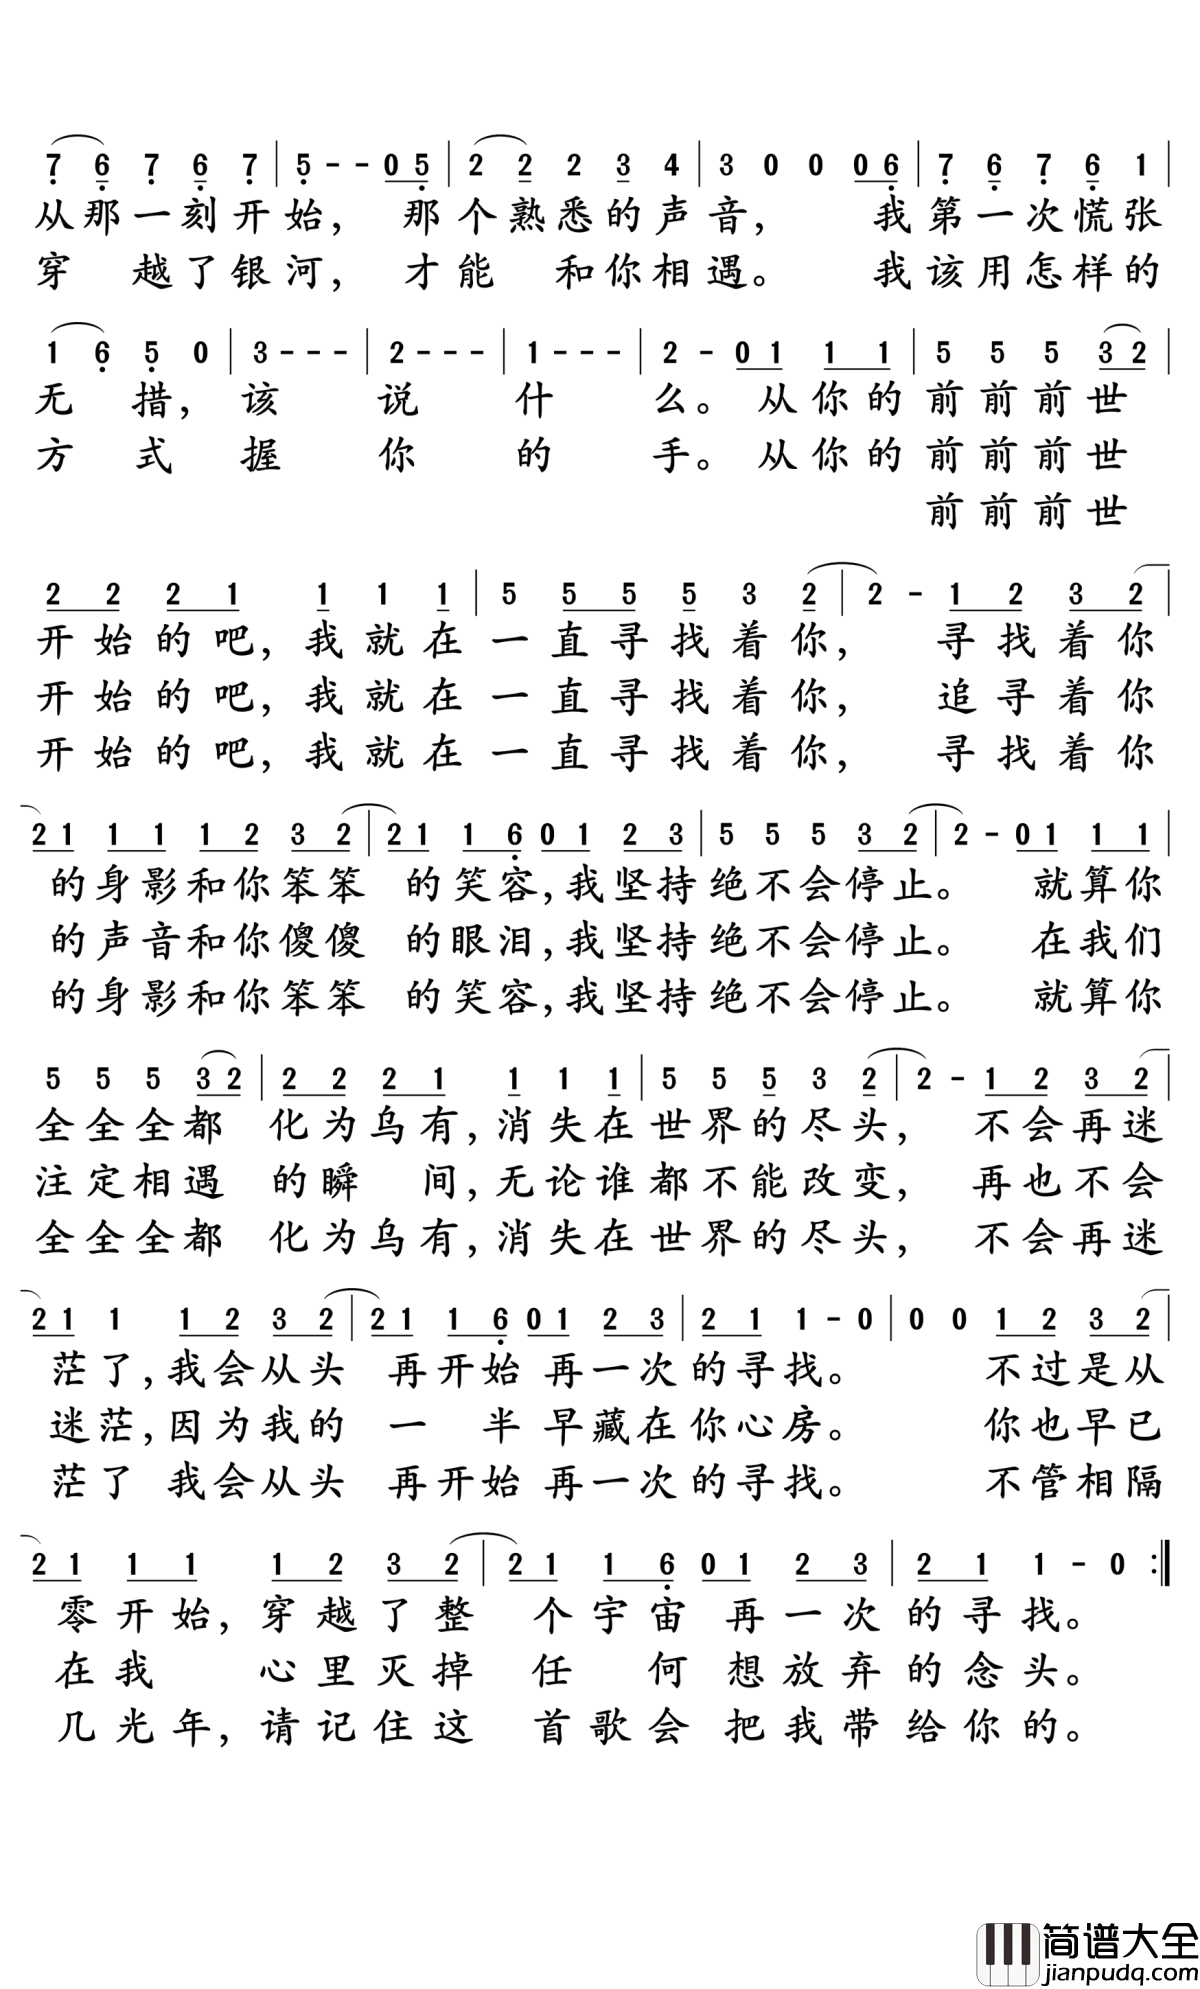 7 6 7 6 7 | 5 - - 0 5 | 2 2 2 3 4 | 3 0 0 0 6 | 7 6 7 6 1 |
从那一刻开始， 那个熟悉的声音， 我第一次慌张
穿 越了银河， 才能 和你相遇。 我该用怎样的
1 6 5 0 | 3 - - - | 2 - - - | 1 - - - | 2 - 0 1 1 1 | 5 5 5 3 2 |
无 措， 该 说 什 么。 从你的前前前世
方 式 握 你 的 手。 从你的前前前世
前前前世
2 2 2 1 1 1 1 | 5 5 5 5 3 2 | 2 - 1 2 3 2 |
开始的吧，我就在一直寻找着你， 寻找着你
开始的吧，我就在一直寻找着你， 追寻着你
开始的吧，我就在一直寻找着你， 寻找着你
2 1 1 1 1 2 3 2 | 2 1 1 6 0 1 2 3 | 5 5 5 3 2 | 2 - 0 1 1 1 |
的身影和你笨笨 的笑容，我坚持绝不会停止。 就算你
的声音和你傻傻 的眼泪，我坚持绝不会停止。 在我们
的身影和你笨笨 的笑容，我坚持绝不会停止。 就算你
5 5 5 3 2 | 2 2 2 1 1 1 1 | 5 5 5 3 2 | 2 - 1 2 3 2 |
全全全都 化为乌有，消失在世界的尽头， 不会再迷
注定相遇 的瞬 间，无论谁都不能改变， 再也不会
全全全都 化为乌有，消失在世界的尽头， 不会再迷
2 1 1 1 2 3 2 | 2 1 1 6 0 1 2 3 | 2 1 1 - 0 | 0 0 1 2 3 2 |
茫了，我会从头 再开始 再一次的寻找。 不过是从
迷茫，因为我的 一 半早藏在你心房。 你也早已
茫了 我会从头 再开始 再一次的寻找。 不管相隔
2 1 1 1 1 2 3 2 | 2 1 1 6 0 1 2 3 | 2 1 1 - 0 :|
零开始，穿越了整 个宇宙 再一次的寻找。
在我 心里灭掉 任 何 想放弃的念头。
几光年，请记住这 首歌会 把我带给你的。
简谱大全
jianpudq.com